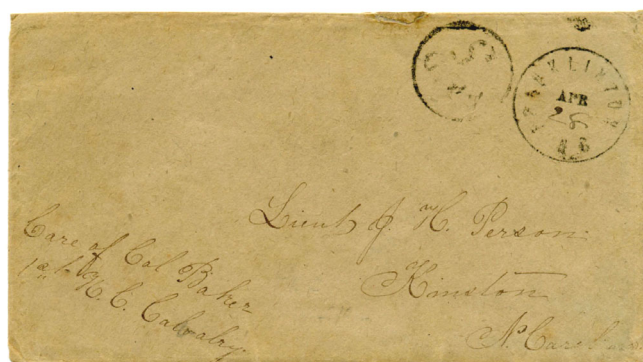 FRANKLINTON
APR
28
N.C.
Lieut J. H. Person
Kinston
N. Carolina
Care of Col Baker
1st N. C. Calvalry